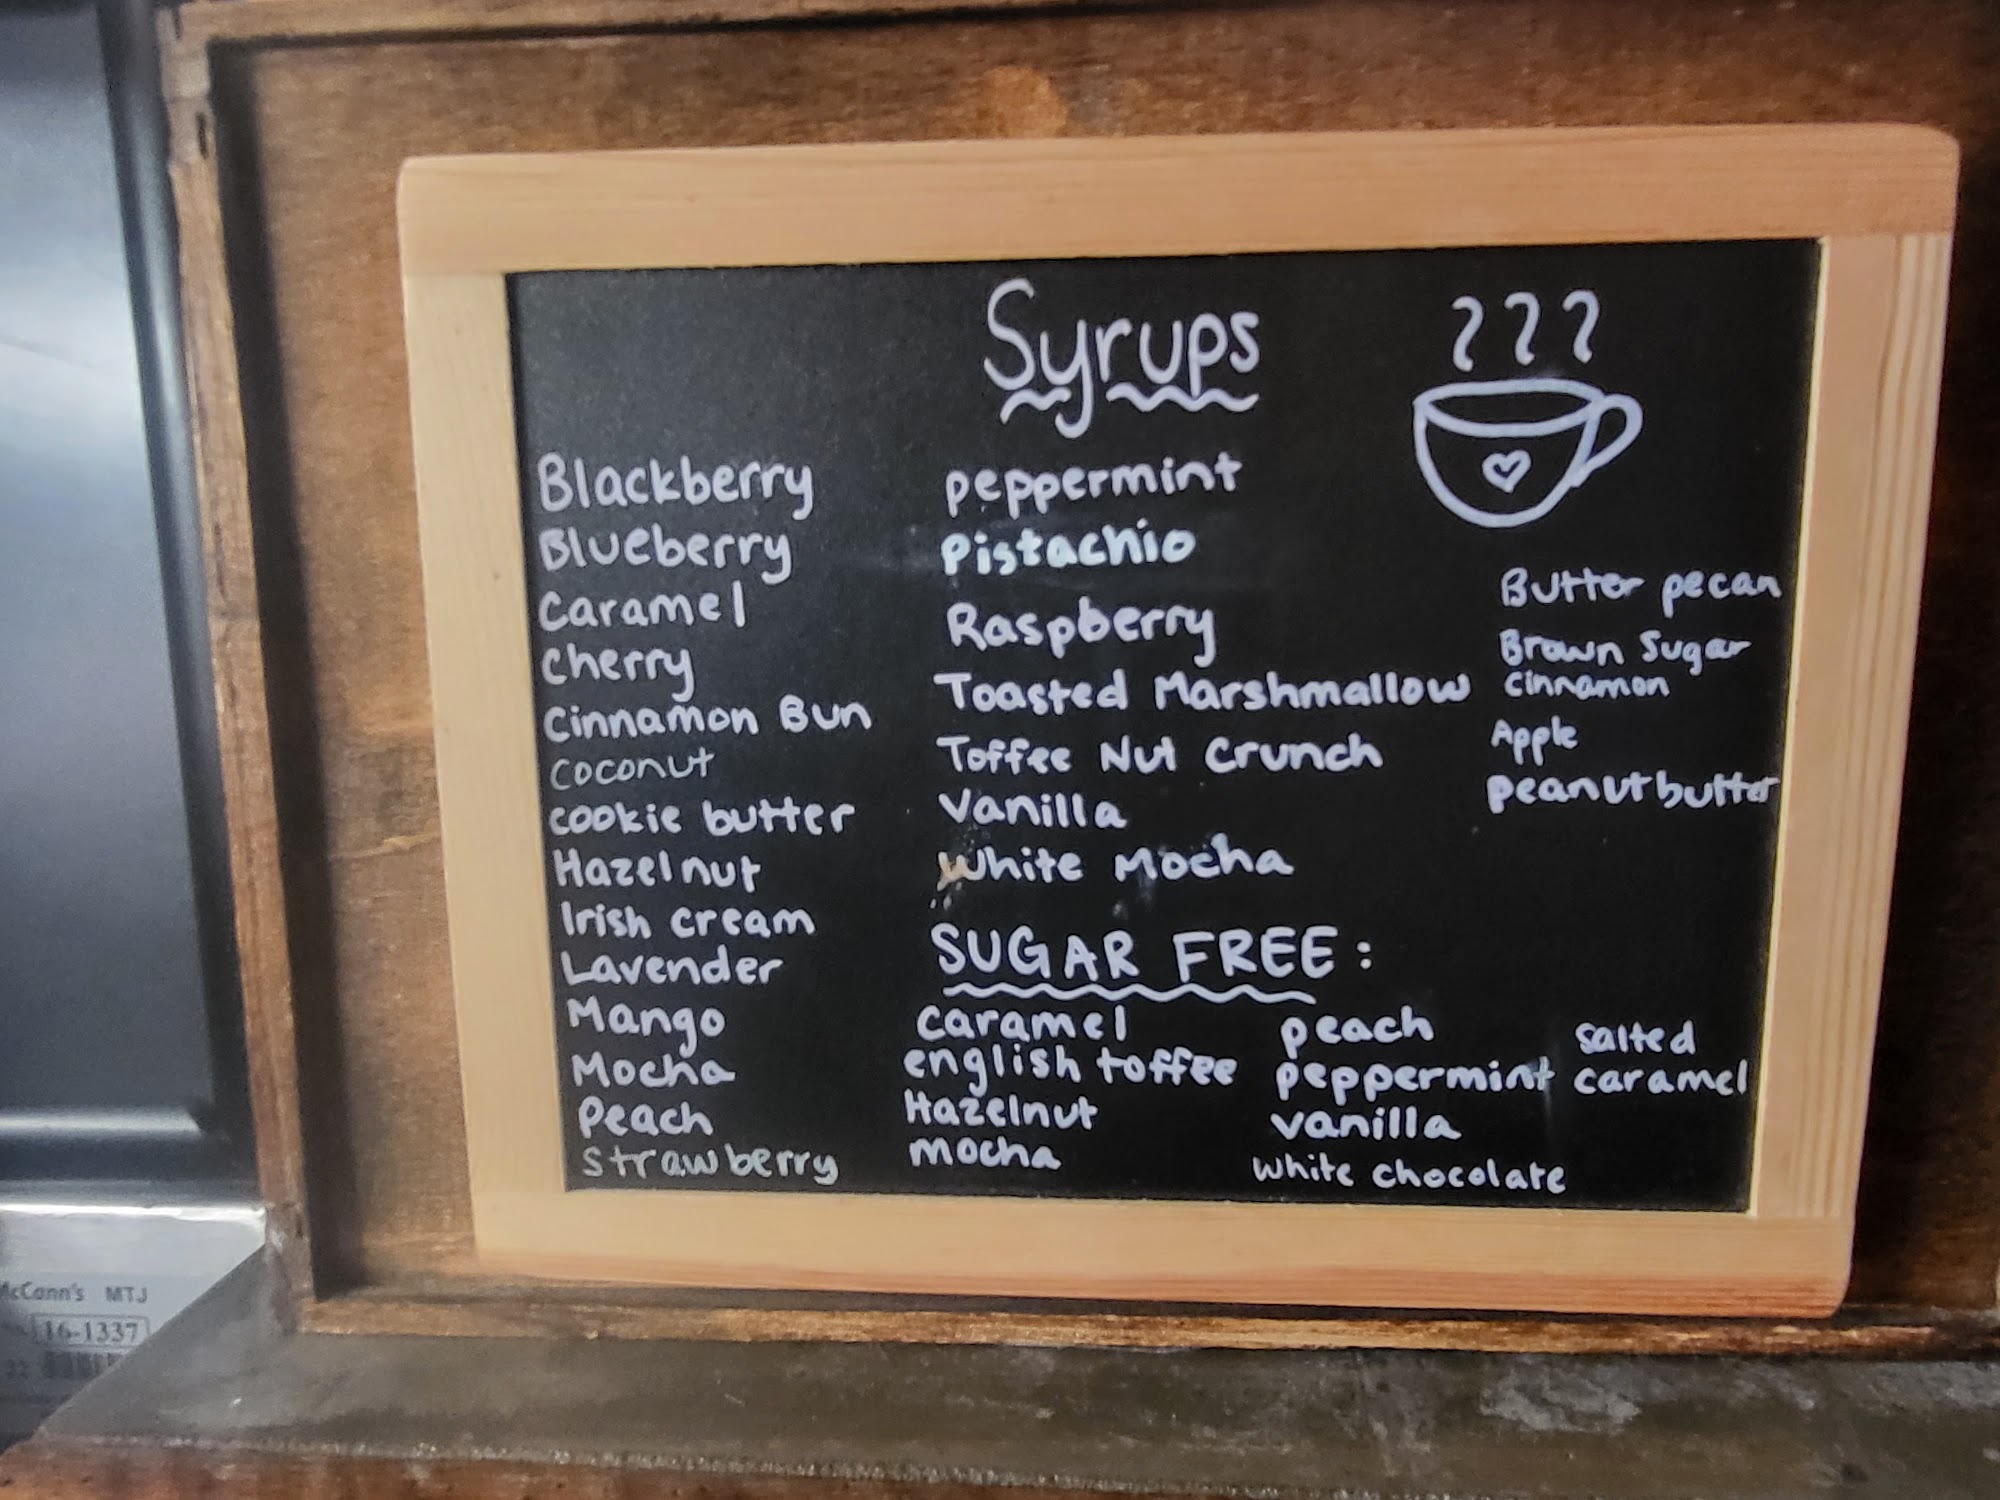 Syrups
Blackberry
Blueberry
Caramel
Cherry
Cinnamon Bun
Coconut
cookie butter
Hazelnut
Irish cream
Lavender
Mango
Mocha
Peach
Strawberry
peppermint
Pistachio
Raspberry
Toasted Marshmallow
Toffee Nut Crunch
Vanilla
White Mocha
Butter pecan
Brown Sugar
cinnamon
Apple
peanut butter
SUGAR FREE:
caramel
english toffee
Hazelnut
mocha
peach
peppermint
vanilla
white chocolate
salted
caramel
McCann's MTJ
16-1337